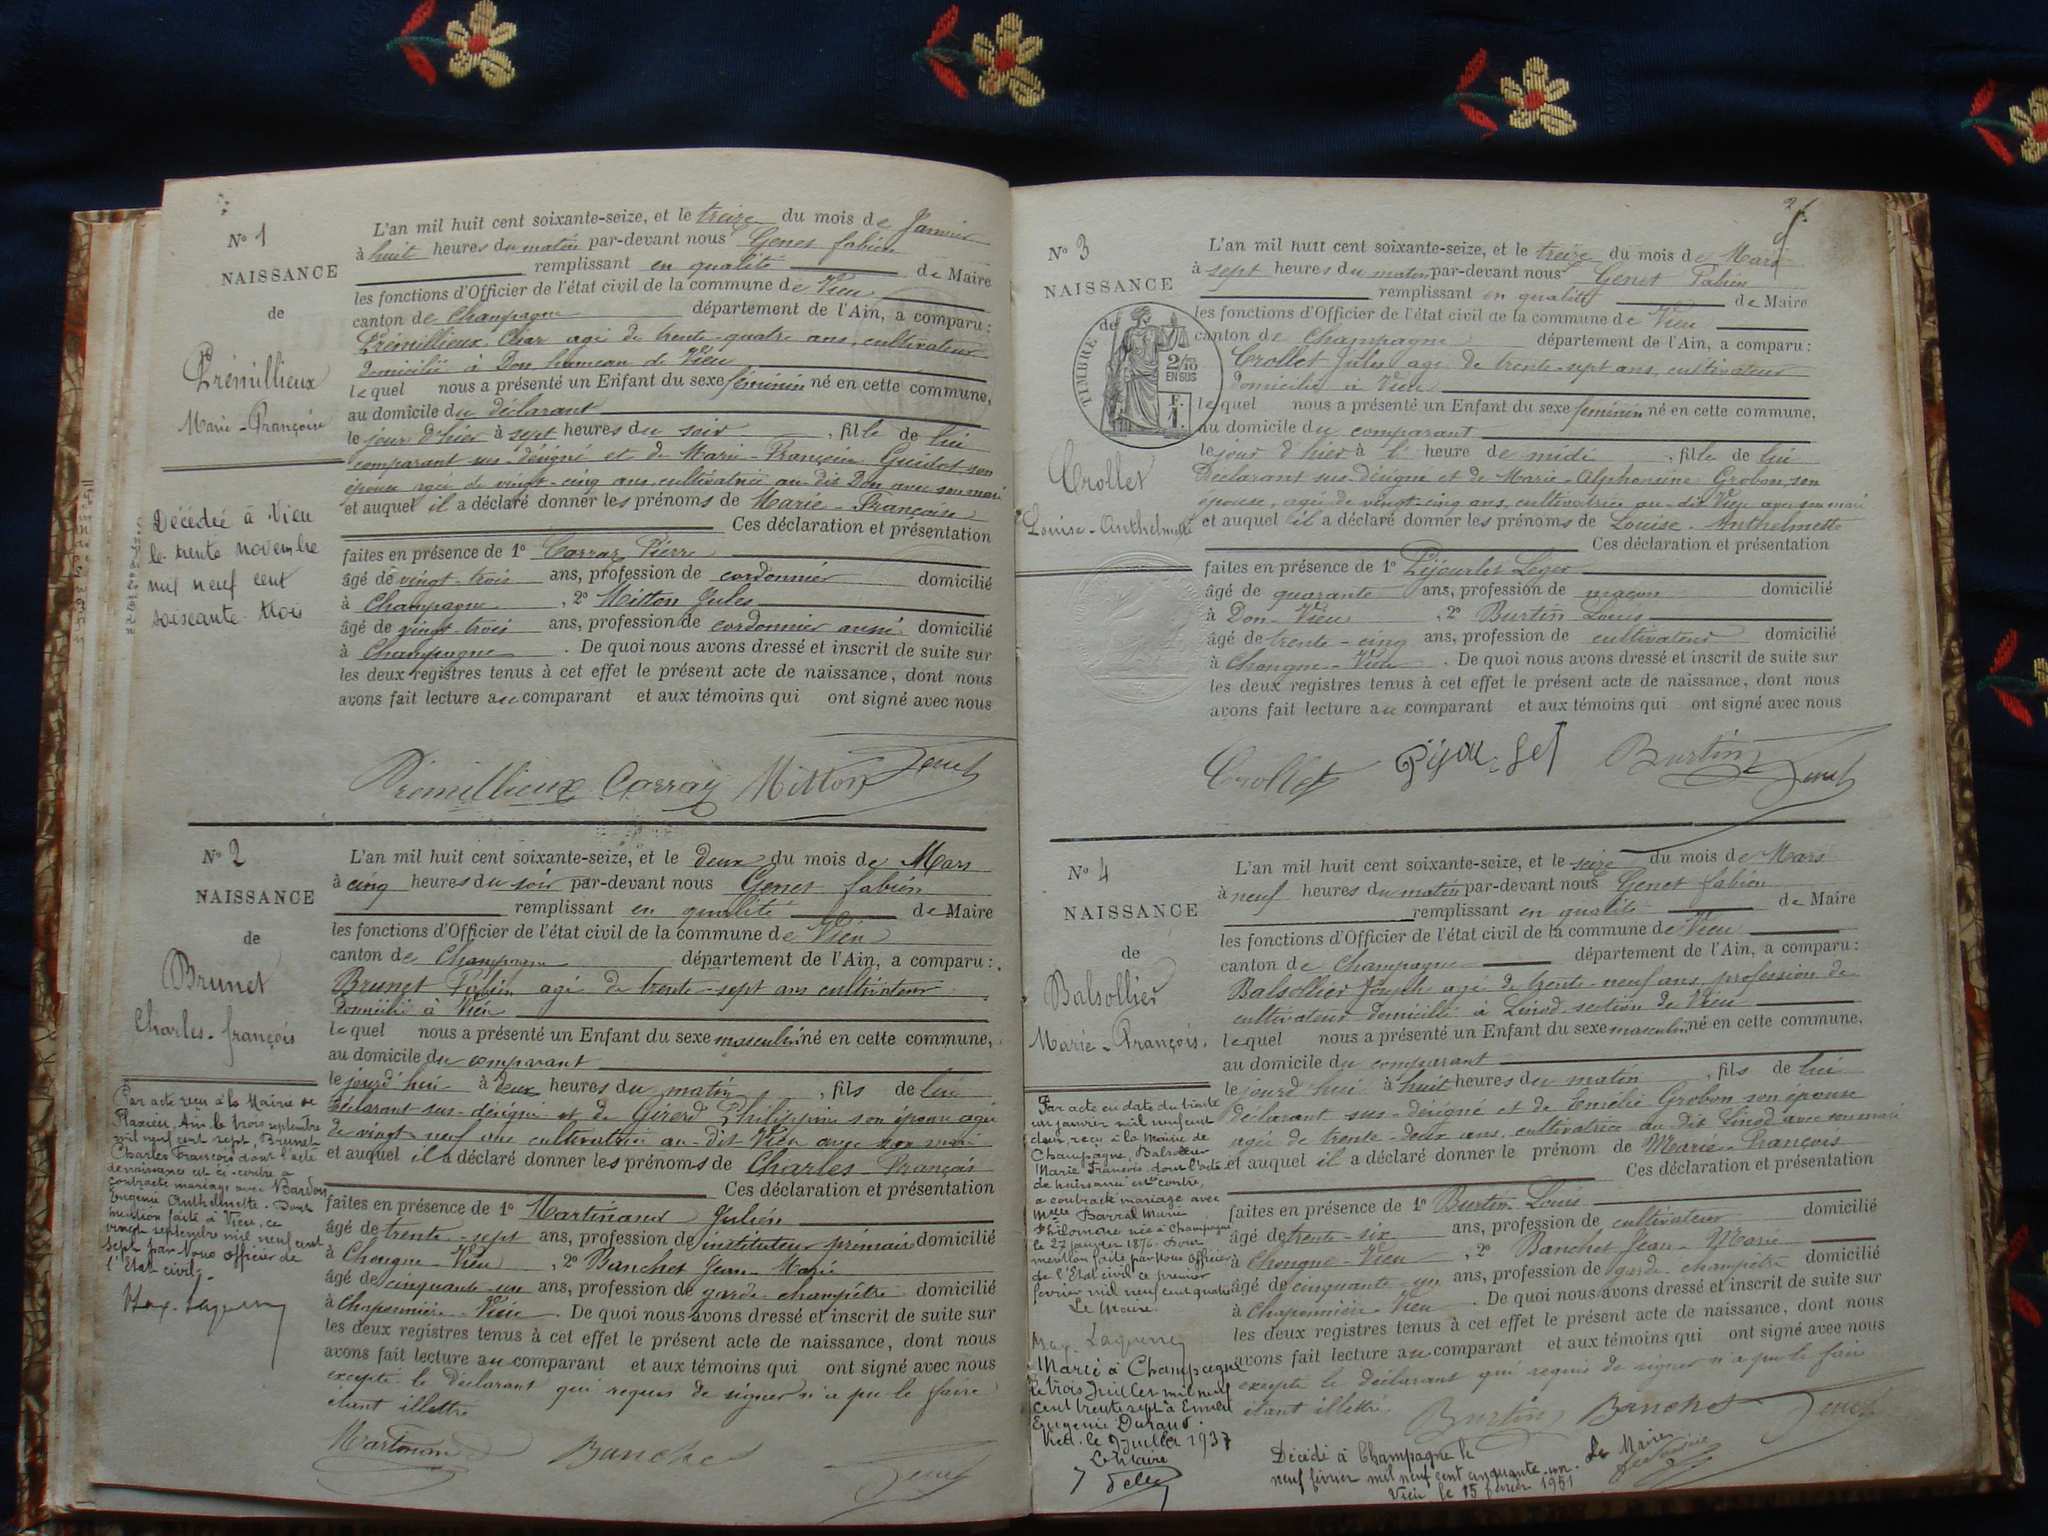 N° 1
NAISSANCE
de
Prémillieux
Marie-Françoise
Décédée à Vieu
le trente novembre
mil neuf cent
soixante-trois
L'an mil huit cent soixante-seize, et le treize du mois de Janvier
à huit heures du matin par-devant nous Genet fabien
remplissant en qualité de Maire
les fonctions d'Officier de l'état civil de la commune de Vieu
canton de Champagne département de l'Ain, a comparu :
Prémillieux César agé de trente-quatre ans, cultivateur
domicilié à Don hameau de Vieu
lequel nous a présenté un Enfant du sexe féminin né en cette commune,
au domicile du déclarant
le jour d'hier à sept heures du soir, fille de lui
comparant sus-désigné et de Marie-Françoise Guidot son
épouse agée de vingt-cinq ans, cultivatrice au dit Don avec son mari
et auquel il a déclaré donner les prénoms de Marie-Françoise
Ces déclaration et présentation
faites en présence de 1° Carraz Pierre
âgé de vingt-trois ans, profession de cordonnier domicilié
à Champagne, 2° Mitton Jules
âgé de vingt-trois ans, profession de cordonnier aussi domicilié
à Champagne. De quoi nous avons dressé et inscrit de suite sur
les deux registres tenus à cet effet le présent acte de naissance, dont nous
avons fait lecture au comparant et aux témoins qui ont signé avec nous
Prémillieux Carraz Mitton Genet
N° 2
NAISSANCE
de
Brunet
Charles-françois
Par acte reçu à la Mairie de
Flaxieu, Ain, le trois septembre
mil neuf cent sept, Brunet
Charles François dont l'acte
de naissance est ci-contre a
contracté mariage avec Bardon
Eugénie Anthelmette. Dont
mention faite à Vieu, ce
vingt septembre mil neuf cent
sept par Nous officier de
l'Etat civil.
L'an mil huit cent soixante-seize, et le deux du mois de Mars
à cinq heures du soir par-devant nous Genet fabien
remplissant en qualité de Maire
les fonctions d'Officier de l'état civil de la commune de Vieu
canton de Champagne département de l'Ain, a comparu :
Brunet agé de trente-sept ans cultivateur
domicilié à Vieu
lequel nous a présenté un Enfant du sexe masculin né en cette commune,
au domicile du comparant
le jourd'hui à deux heures du matin, fils de lui
déclarant sus-désigné et de Girerd Philippine son épouse agée
de vingt-neuf ans cultivatrice au-dit Vieu avec son mari
et auquel il a déclaré donner les prénoms de Charles-François
Ces déclaration et présentation
faites en présence de 1° Martinand Julien
âgé de trente-sept ans, profession de instituteur primaire domicilié
à Chongne-Vieu, 2° Banchet Jean-Marie
âgé de cinquante-un ans, profession de garde champêtre domicilié
à Chaponnière-Vieu. De quoi nous avons dressé et inscrit de suite sur
les deux registres tenus à cet effet le présent acte de naissance, dont nous
avons fait lecture au comparant et aux témoins qui ont signé avec nous
excepté le déclarant qui requis de signer n'a pu le faire
étant illettré
Martinand Banchet Genet
N° 3
NAISSANCE
de
TIMBRE
2/10
EN SUS
F.
1.
Crollet
Louise-Anthelmette
L'an mil huit cent soixante-seize, et le treize du mois de Mars
à sept heures du matin par-devant nous Genet Fabien
remplissant en qualité de Maire
les fonctions d'Officier de l'état civil de la commune de Vieu
canton de Champagne département de l'Ain, a comparu :
Crollet Jules agé de trente-sept ans, cultivateur
domicilié à Vieu
lequel nous a présenté un Enfant du sexe féminin né en cette commune,
au domicile du comparant
le jour d'hier à l' heure de midi, fille de lui
Déclarant sus-désigné et de Marie-Alphonsine Grobon, son
épouse, agée de vingt-cinq ans, cultivatrice au-dit Vieu avec son mari
et auquel il a déclaré donner les prénoms de Louise-Anthelmette
Ces déclaration et présentation
faites en présence de 1° Léger
âgé de quarante ans, profession de maçon domicilié
à Don-Vieu, 2° Burtin Louis
âgé de trente-cinq ans, profession de cultivateur domicilié
à Chongne-Vieu. De quoi nous avons dressé et inscrit de suite sur
les deux registres tenus à cet effet le présent acte de naissance, dont nous
avons fait lecture au comparant et aux témoins qui ont signé avec nous
Crollet Burtin Genet
N° 4
NAISSANCE
de
Balsollier
Marie-François.
Par acte en date du trente
un janvier mil neuf cent
reçu à la Mairie de
Champagne,
Marie François dont l'acte
de naissance est ci-contre,
a contracté mariage avec
Melle Barral Marie
Philomène née à Champagne
le 27 janvier 1876. Dont
mention faite par Nous Officier
de l'Etat civil ce premier
février mil neuf cent quatre
Le Maire
Marié à Champagne
le trois Juillet mil neuf
cent trente sept à
Eugénie Durand.
Vieu le 9 juillet 1937
Le Maire
L'an mil huit cent soixante-seize, et le seize du mois de Mars
à neuf heures du matin par-devant nous Genet fabien
remplissant en qualité de Maire
les fonctions d'Officier de l'état civil de la commune de Vieu
canton de Champagne département de l'Ain, a comparu :
Balsollier Joseph agé de trente-neuf ans, profession de
cultivateur domicilié à Linod, section de Vieu
lequel nous a présenté un Enfant du sexe masculin né en cette commune,
au domicile du comparant
le jourd'hui à huit heures du matin, fils de lui
déclarant sus-désigné et de Emélie Grobon son épouse
agée de trente-deux ans, cultivatrice au dit Linod avec son mari
et auquel il a déclaré donner le prénom de Marie-François
Ces déclaration et présentation
faites en présence de 1° Burtin Louis
âgé de trente-six ans, profession de cultivateur domicilié
à Chongne-Vieu, 2° Banchet Jean-Marie
âgé de cinquante-un ans, profession de garde champêtre domicilié
à Chaponnière-Vieu. De quoi nous avons dressé et inscrit de suite sur
les deux registres tenus à cet effet le présent acte de naissance, dont nous
avons fait lecture au comparant et aux témoins qui ont signé avec nous
excepté le déclarant qui requis de signer n'a pu le faire
étant illettré.
Burtin Banchet Genet
Décédé à Champagne le
neuf février mil neuf cent cinquante-un.
Vieu le 15 février 1951
Le Maire